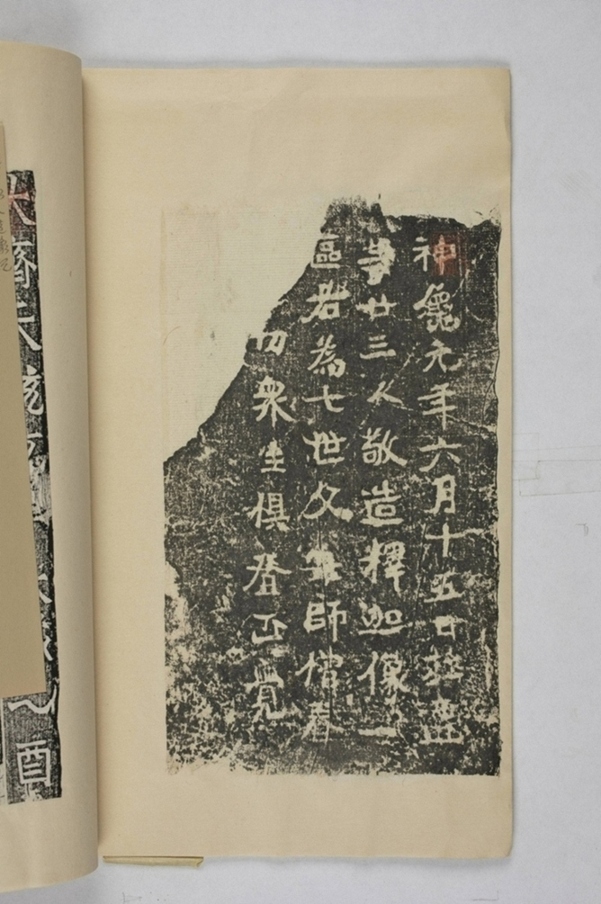 神龜元年六月十五日
等廿三人敬造釋迦像一
區 為七世父母師僧眷
切衆生俱登正覺
大齊天統 酉